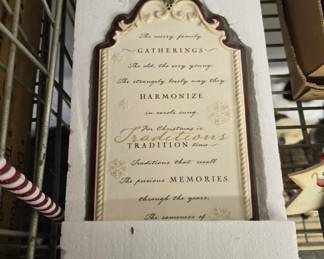 The merry family
GATHERINGS
The old, the very young.
The strangely lovely way they
HARMONIZE
in carols sung.
For Christmas is
Traditions
TRADITION time
Traditions that recall
The precious MEMORIES
through the years.
The sameness of